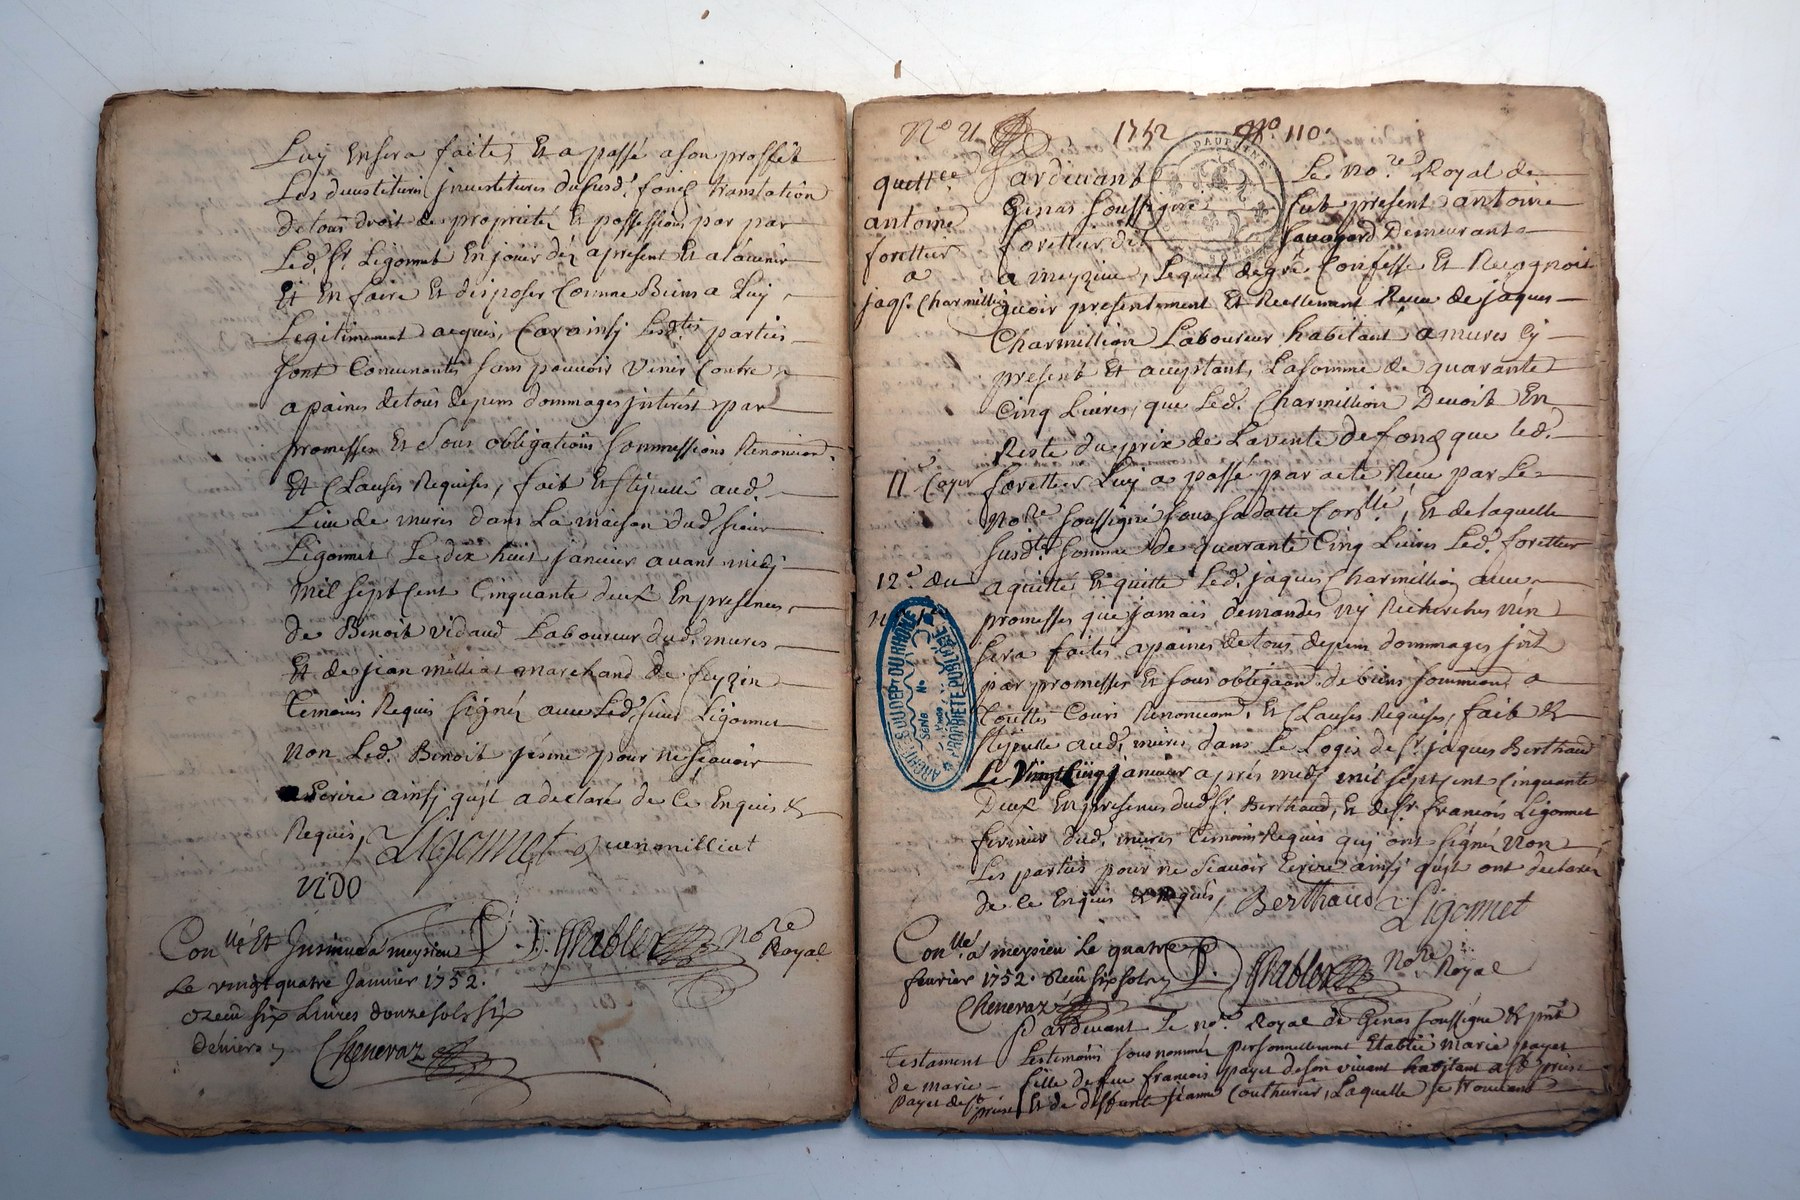 Luy en sera faite, Et a passé a son proffit
Les devestitures jnvestitures du susd. fond translation
de tous droit de propriété Et possessions par par
Led. Sr. Ligonnet En jouir déz apresent Et a l'avenir
Et En faire Et disposer Comme Biens a Luy
Legitimement acquis, Car ainsy Lesdtes parties
sont Convenantes sans pouvoir Venir Contre
a paines de tous depens dommages jnterest par
promesses Et sous obligations soumissions Renonciaon.
Et Clauses Requises, fait Et stipullé aud.
Lieu de mures dans La maison dud. sieur
Ligonnet Le dix huit janvier avant midy
mil sept Cent Cinquante deux En presences
de Benoit vidaud Laboureur dud. mures
Et de jean milliat marchand de feyzin
temoins Requis signéz avec Led. sieur Ligonnet
non Led. Benoit pour ne sçavoir
Ecrire ainsy qu'jl a declaré de Ce Enquis &
Requis, Ligonnet milliat
vido
Conllé Et Jnsinué a meysieu
Le vingt quatre Janvier 1752.
Receu six Livres douze sols six
deniers Chenevaz
Chablez Nore Royal
1752 No. 110.
DAUPHINE
quittce
antoine
forettier
a
jaqs. Charmillion
Pardevant Le nore. Royal de
Genas soussigné fut present antoine
forettier dit savoyard Demeurant
a meyzieu, Lequel de gré Confesse Et Recognoit
avoir presentement Et Reellement Receu de jaques
Charmillion Laboureur habitant a mures Cy
present Et acceptant, La somme de quarante
Cinq Livres, que Led. Charmillion Devoit En
Reste du prix de La vente de fond que led.
11e Cayer
forettier Luy a passé par acte Receu par Le
Nore soussigné sous sa datte Conllé, Et de laquelle
susdte somme de quarante Cinq Livres Led. forettier
12e. du
a quitté Et quitte Led. jaques Charmillion avec
promesses que jamais demandes ny Recherches n'en
sera faites a paines de tous depens dommages jnt
par promesses Et sous obligaon de biens soumissions a
touttes Cours Renonciaons, Et Clauses Requises, fait &
stipullé aud. mures dans Le Logis de Sr. jaques Berthaud
Le Vingt Cinq janvier aprés midy mil sept Cent Cinquante
Deux En presences dud. Sr. Berthaud, Et de Sr. francois Ligonnet
fermier dud. mures temoins Requis qui ont signéz Non
Les parties pour ne Scavoir Ecrire ainsy qu'jls ont declaréz
de Ce Enquis & Requis, Berthaud Ligonnet
ARCHIVES DU DEPt DU RHONE
PROPRIETE PUBLIQUE
Conllé a meysieu Le quatre
fevrier 1752. Receu six sols
Chenevaz
Chablez Nore Royal
Pardevant Le nore. Royal de Genas soussigné & pnt
Testament
de marie
payet de St
prien
Les temoins sous nommés personnellement Etablie marie payet
fille de feu francois payet de son vivant habitant a St. prien
Et de deffunte jeanne Couthurier, Laquelle se trouvant